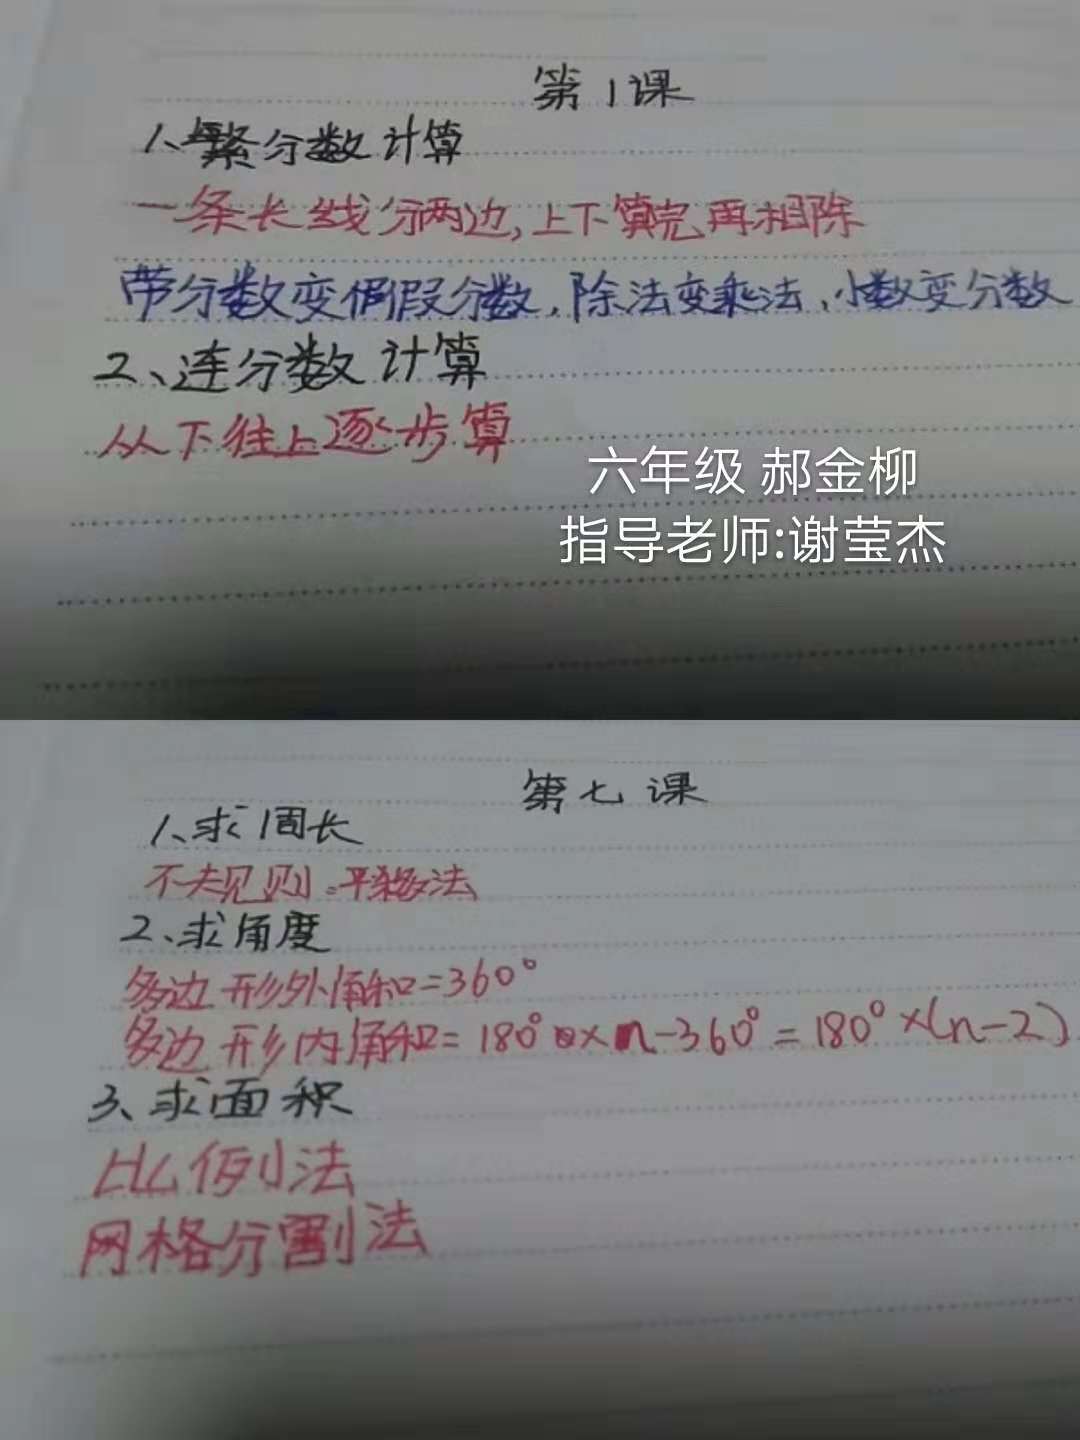 第1课
1、繁分数计算
一条长线分两边,上下算完再相除
带分数变假分数,除法变乘法,小数变分数
2、连分数计算
从下往上逐步算
六年级 郝金柳
指导老师:谢莹杰
第七课
1、求周长
不规则:平移法
2、求角度
多边形外角和=360°
多边形内角和=180°×n-360°=180°×(n-2)
3、求面积
比例法
网格分割法